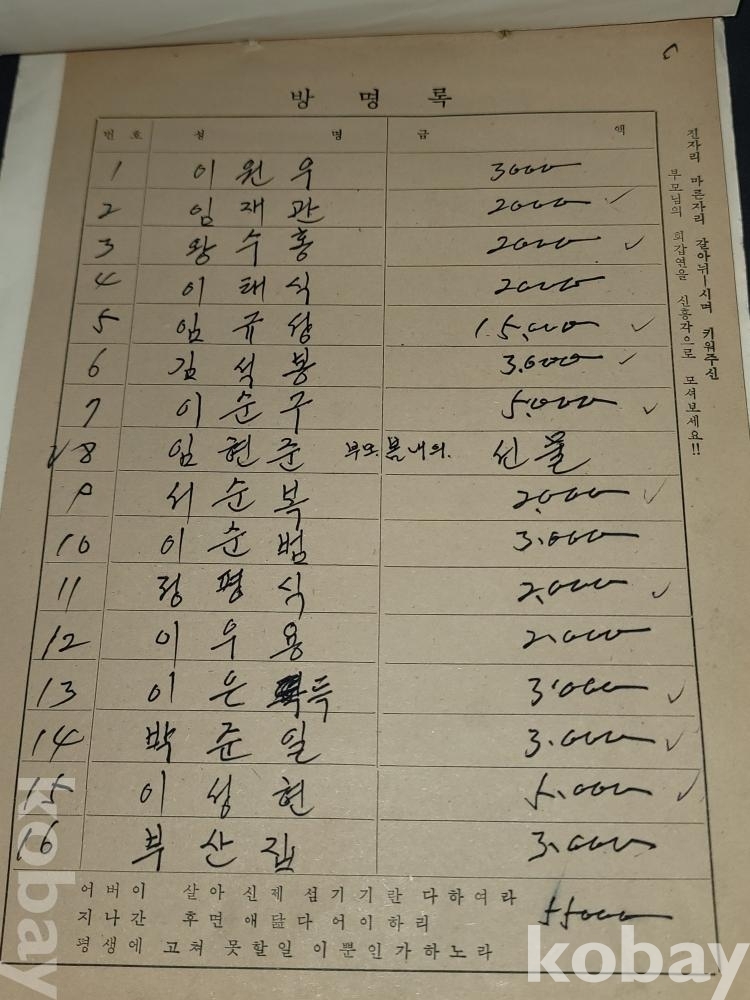 방명록
번호 성명 금액
1 이원우 3000
2 임재관 2000 ✓
3 왕수홍 2000 ✓
4 이태식 2000
5 임규성 15,000 ✓
6 김석봉 3.000 ✓
7 이순구 5,000 ✓
8 임현준 부모. 봄내의. 선물
9 서순복 2,000 ✓
10 이순범 3.000
11 정평식 2,000 ✓
12 이우용 2.000
13 이은득 3.000 ✓
14 박준일 3.000 ✓
15 이성현 5.000 ✓
16 부산집 3.000
어버이 살아신제 섬기기란 다하여라
지나간 후면 애닯다 어이하리
평생에 고쳐 못할일 이뿐인가하노라
55000
진자리 마른자리 갈아뉘—시며 키워주신
부모님의 회갑연을 신흥각으로 모셔보세요!!
kobay
kobay